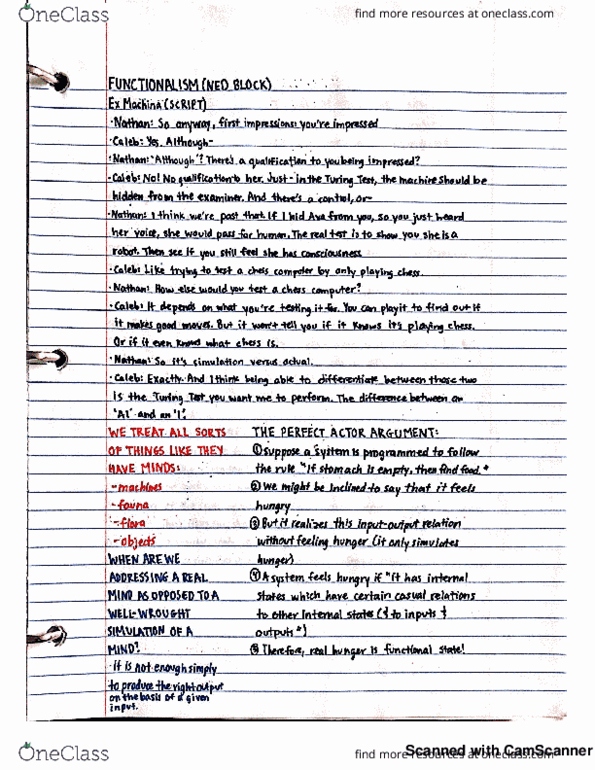 OneClass
find more resources at oneclass.com
FUNCTIONALISM (NED BLOCK)
Ex Machina (SCRIPT)
· Nathan: So anyway, first impressions: you're impressed
· Caleb: Yes. Although-
· Nathan: 'Although'? There's a qualification to you being impressed?
· Caleb: No! No qualification to her. Just - in the Turing Test, the machine should be
hidden from the examiner. And there's a control, or-
· Nathan: I think we're past that. If I hid Ava from you, so you just heard
her voice, she would pass for human. The real test is to show you she is a
robot. Then see if you still feel she has consciousness
· Caleb: Like trying to test a chess computer by only playing chess.
· Nathan: How else would you test a chess computer?
· Caleb: It depends on what you're testing it for. You can play it to find out if
it makes good moves. But it won't tell you if it knows it's playing chess.
Or if it even knows what chess is.
· Nathan: So it's simulation versus actual.
· Caleb: Exactly. And I think being able to differentiate between those two
is the Turing Test you want me to perform. The difference between an
'AI' and an 'I'.
WE TREAT ALL SORTS
OF THINGS LIKE THEY
HAVE MINDS:
- machines
- fauna
- flora
- objects
WHEN ARE WE
ADDRESSING A REAL
MIND AS OPPOSED TO A
WELL-WROUGHT
SIMULATION OF A
MIND?
· it is not enough simply
to produce the right output
on the basis of a given
input.
THE PERFECT ACTOR ARGUMENT:
① Suppose a system is programmed to follow
the rule "If stomach is empty, then find food."
② We might be inclined to say that it feels
hungry
③ But it realizes this input-output relation
without feeling hunger (it only simulates
hunger)
④ A system feels hungry if "it has internal
states which have certain casual relations
to other internal states ( & to inputs &
outputs")
⑤ Therefore, real hunger is functional state!
OneClass
find more resources at oneclass.com
Scanned with CamScanner